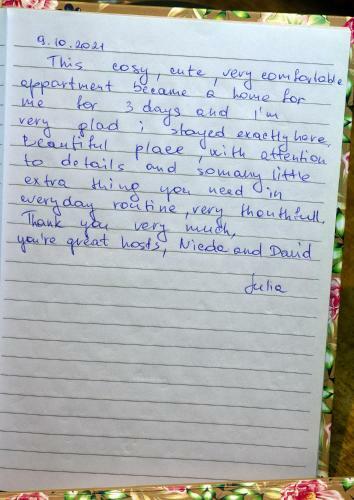 9.10.2021
This cosy, cute, very comfortable
appartment became a home for
me for 3 days and I'm
very glad i stayed exactly here.
Beautiful place, with attention
to details and somany little
extra thing you need in
everyday routine, very thouthfull.
Thank you very much,
you're great hosts, Nieda and David
Julia